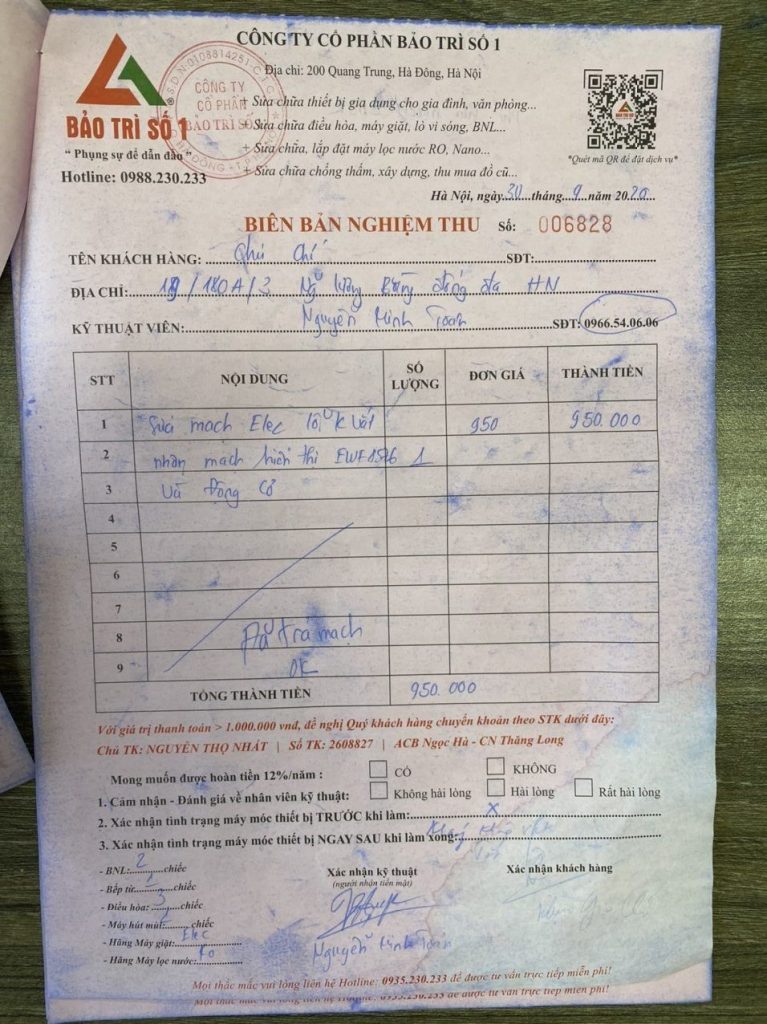 CÔNG TY CỔ PHẦN BẢO TRÌ SỐ 1
Địa chỉ: 200 Quang Trung, Hà Đông, Hà Nội
S.D.N:0108814251-C.T.C.P
CÔNG TY
CỔ PHẦN
BẢO TRÌ SỐ 1
HÀ ĐÔNG - T.P HÀ NỘI
+ Sửa chữa thiết bị gia dụng cho gia đình, văn phòng...
+ Sửa chữa điều hòa, máy giặt, lò vi sóng, BNL...
+ Sửa chữa, lắp đặt máy lọc nước RO, Nano...
+ Sửa chữa chống thấm, xây dựng, thu mua đồ cũ...
®
BẢO TRÌ SỐ 1
" Phụng sự để dẫn đầu "
Hotline: 0988.230.233
*Quét mã QR để đặt dịch vụ*
Hà Nội, ngày 30 tháng 9 năm 2020
BIÊN BẢN NGHIỆM THU Số: 006828
TÊN KHÁCH HÀNG: Chí SĐT:
ĐỊA CHỈ: /180A/3 Đống đa HN
KỸ THUẬT VIÊN: Nguyễn Minh Toàn SĐT: 0966.54.06.06
STT NỘI DUNG SỐ LƯỢNG ĐƠN GIÁ THÀNH TIỀN
1 Sửa mạch Elec lỗi k vắt 950 950.000
2 nhận mạch hiển thị 1
3 Và Động cơ
4
5
6
7
8 Đã trả mạch
9 OK
TỔNG THÀNH TIỀN 950.000
Với giá trị thanh toán > 1.000.000 vnđ, đề nghị Quý khách hàng chuyển khoản theo STK dưới đây:
Chủ TK: NGUYỄN THỌ NHẤT | Số TK: 2608827 | ACB Ngọc Hà - CN Thăng Long
Mong muốn được hoàn tiền 12%/năm : CÓ KHÔNG
1. Cảm nhận - Đánh giá về nhân viên kỹ thuật: Không hài lòng Hài lòng Rất hài lòng
2. Xác nhận tình trạng máy móc thiết bị TRƯỚC khi làm: x
3. Xác nhận tình trạng máy móc thiết bị NGAY SAU khi làm xong:
- BNL: 2 chiếc
- Bếp từ: 1 chiếc
- Điều hòa: chiếc
- Máy hút mùi: chiếc
- Hãng Máy giặt: Elec
- Hãng Máy lọc nước:
Xác nhận kỹ thuật
(người nhận tiền mặt)
Nguyễn Minh Toàn
Xác nhận khách hàng
Mọi thắc mắc vui lòng liên hệ Hotline: 0935.230.233 để được tư vấn trực tiếp miễn phí!
Mọi thắc mắc vui lòng liên hệ Hotline: 0935.230.233 để được tư vấn trực tiếp miễn phí!